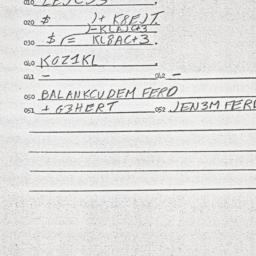 010 LEJC55
020 $ )+ K8EJT.
)-KLAJC+3
030 $ (= KL8AC+3.
040 KOZ1KL
041 - 042 -
050 BALANKCUDEM FERO
051 + G3HERT 052 JEN3M FER